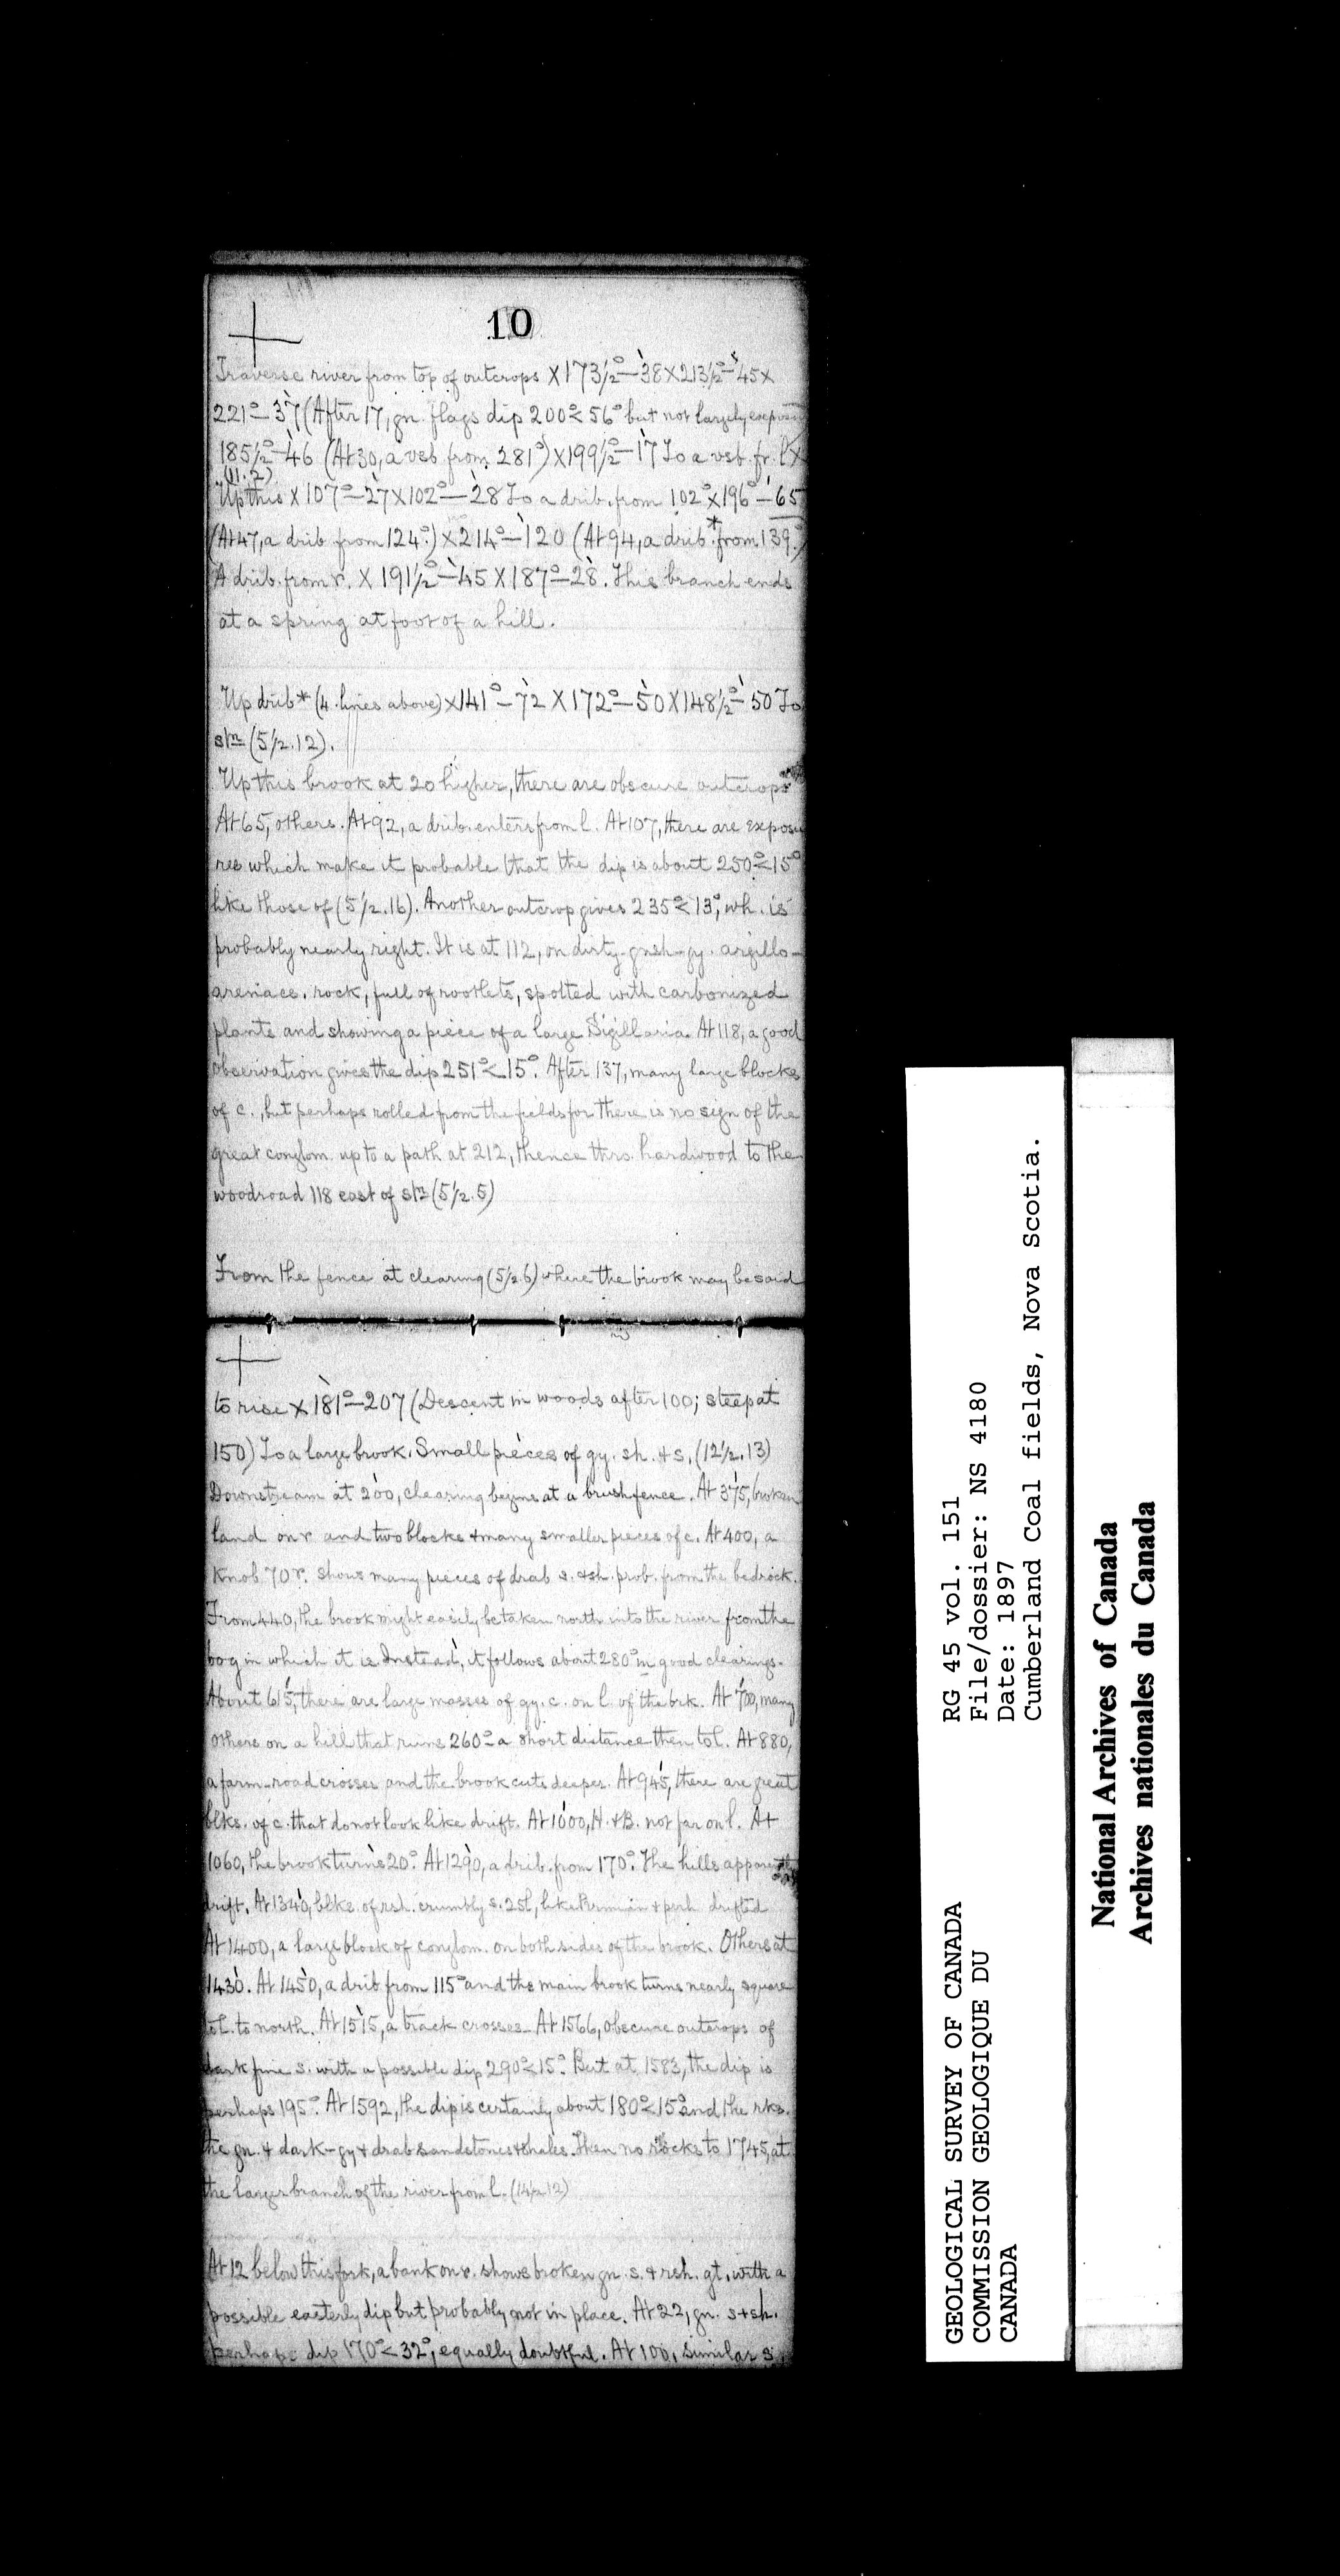 10
Traverse river from top of outcrops X 173½° – 38 X 213½° – 45 X
221° – 37 (After 17, gn. flags dip 200° < 56° but not largely exposed
185½° – 46 (At 30, a vsb from 281°) X 199½° – 17 To a vsb. fr. l X
(11.2)
Up this X 107° – 27 X 102° – 28 To a drib. from 102° X 196° – 65
(At 47, a drib from 124°.) X 214° – 120 (At 94, a drib.* from 139°.)
A drib. from r. X 191½° – 45 X 187° – 28. This branch ends
at a spring at foot of a hill.
Up drib* (4 lines above) X 141° – 72 X 172° – 50 X 148½° – 50 To
stn (5½.12).
Up this brook at 20 higher, there are obscure outcrops
At 65, others. At 92, a drib. enters from l. At 107, there are exposu
res which make it probable that the dip is about 250° < 15°
like those of (5½.16). Another outcrop gives 235° < 13°, wh. is
probably nearly right. It is at 112, on dirty-gnsh-gy. argillo-
areniace. rock, full of rootlets, spotted with carbonized
plants and showing a piece of a large Sigillaria. At 118, a good
observation gives the dip 251° < 15°. After 137, many large blocks
of c., but perhaps rolled from the fields for there is no sign of the
great conglom. up to a path at 212, thence thro. hardwood to the
woodroad 118 east of stn (5½.5)
From the fence at clearing (5½.6) where the brook may be said
to rise X 181° – 207 (Descent in woods after 100; steep at
150) To a large brook. Small pieces of gy. sh. + s. (12½.13)
Downstream at 200, clearing begins at a brushfence. At 375, broken
land on r and two blocks + many smaller pieces of c. At 400, a
knob 70 r. shows many pieces of drab s. + sh. prob. from the bedrock.
From 440, the brook might easily be taken north into the river from the
bog in which it is. Instead, it follows about 280° in good clearings.
About 615, there are large masses of gy. c. on l. of the brk. At 700, many
others on a hill that runs 260° a short distance then to l. At 880,
a farm-road crosses and the brook cuts deeper. At 945, there are great
blks. of c. that do not look like drift. At 1000, H. + B. not far on l. At
1060, the brook turns 20°. At 1290, a drib. from 170°. The hills apparently
drift. At 1340, blks. of rsh. crumbly s. 25 l, like Permian + perh. drifted
At 1400, a large block of conglom. on both sides of the brook. Others at
1430. At 1450, a drib from 115° and the main brook turns nearly square
to l. to north. At 1515, a track crosses. At 1566, obscure outcrops of
dark fine s. with a possible dip 290° < 15°. But at 1583, the dip is
perhaps 195°. At 1592, the dip is certainly about 180° < 15° and the rks.
the gn. + dark-gy + drab sandstones + shales. Then no rocks to 1745, at
the larger branch of the river from l. (14½.12)
At 12 below this fork, a bank on r. shows broken gn. s. + rsh. gt., with a
possible easterly dip but probably not in place. At 22, gn. s + sh.
perhaps dip 170° < 32°, equally doubtful. At 100, similar s.
GEOLOGICAL SURVEY OF CANADA
COMMISSION GEOLOGIQUE DU
CANADA
RG 45 vol. 151
File/dossier: NS 4180
Date: 1897
Cumberland Coal fields, Nova Scotia.
National Archives of Canada
Archives nationales du Canada